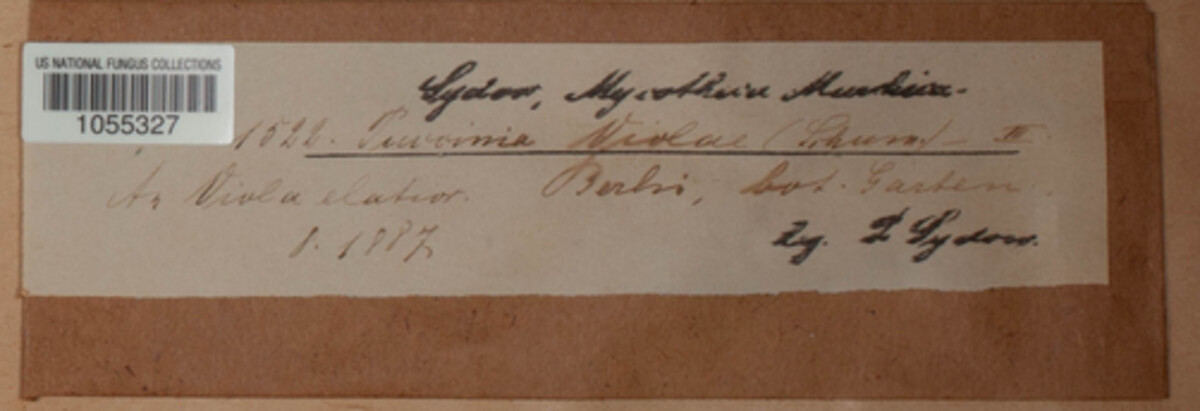 US NATIONAL FUNGUS COLLECTIONS
1055327
Sydow, Mycotheca Marchica.
1522. Puccinia Violae (Schum.) – III.
An Viola elatior. Berlin, bot. Garten.
8. 1887
Leg. P Sydow.